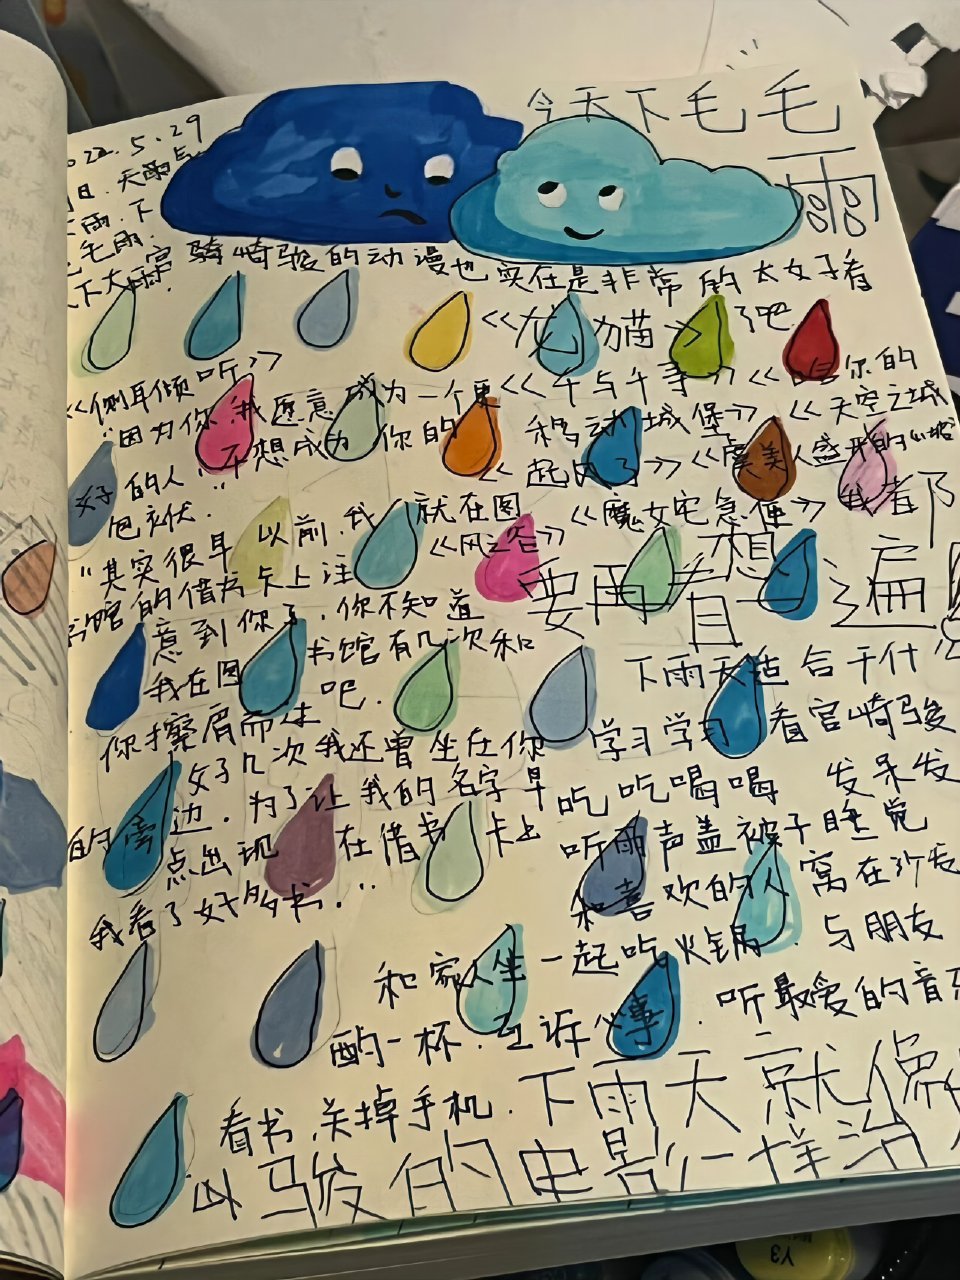 今天下毛毛雨
2022.5.29
日.天雨气
大雨.下
毛毛雨.
下大雨.
宫崎骏的动漫也实在是非常的太好看
了吧.
《龙猫》
《侧耳倾听》
《千与千寻》《 你的
"因为你,我愿意成为一个更
移动城堡》《天空之城
好的人.不想成为你的
《起风了》《虞美人盛开的山坡
包袱."
《魔女宅急便》 我都
"其实很早以前.我就在图
《风之谷》
想
书馆的借书卡上注
要再看一遍
意到你了.你不知道
我在图书馆有几次和
下雨天适合干什
你擦肩而过吧.
学习学习 看宫崎骏
好几次我还曾坐在你
吃吃喝喝 发呆发
的旁边.为了让我的名字早
听雨声盖被子睡觉
点出现在借书卡上
和喜欢的人窝在沙发
我看了好多书."
和家人坐一起吃火锅. 与朋友
酌一杯.互诉心事. 听最爱的音
看书.关掉手机.下雨天就像
崎骏的电影一样治
Y3